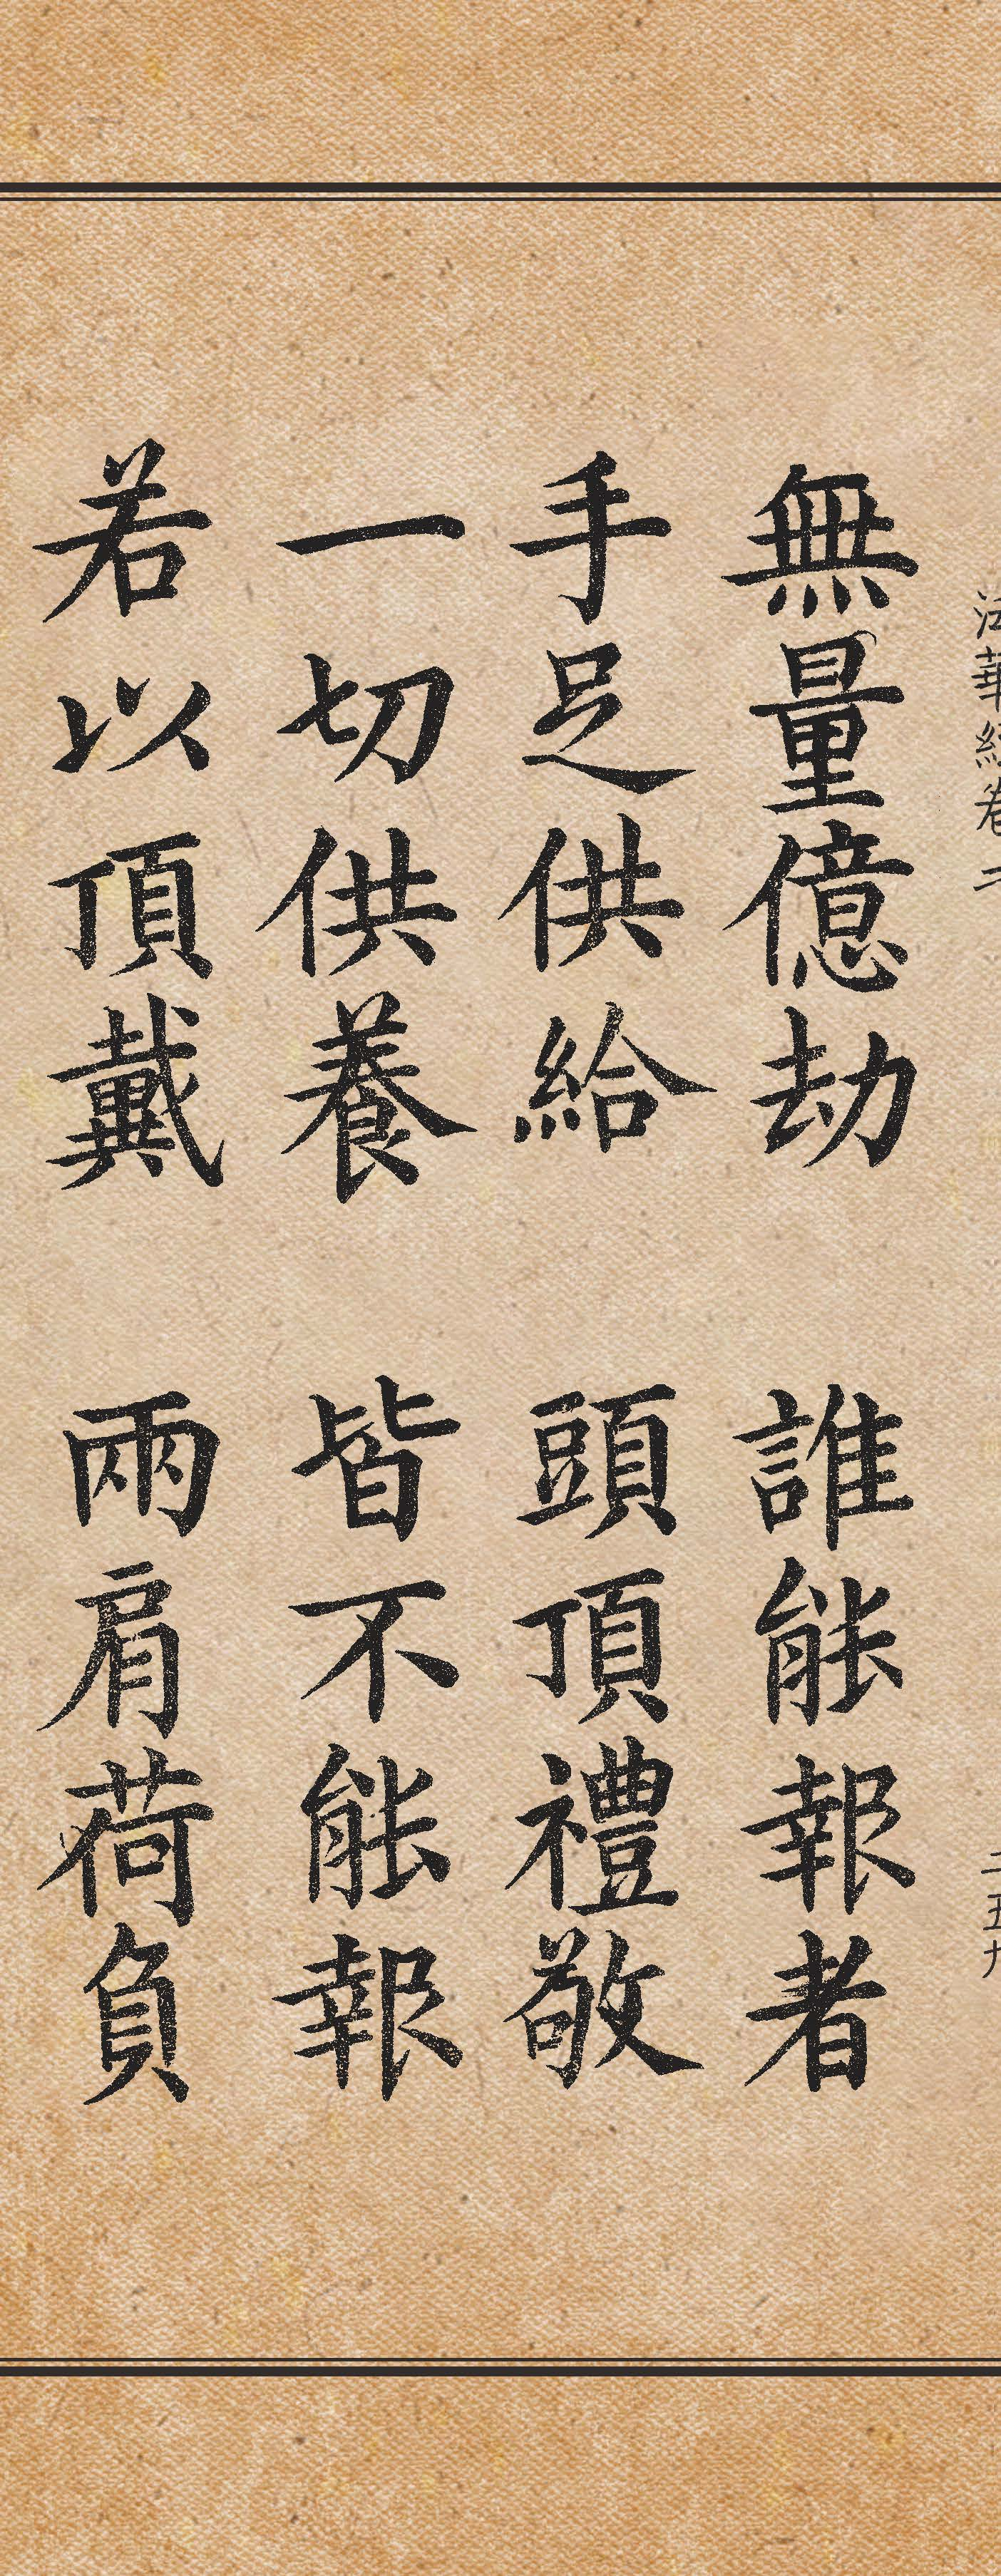 法華經卷二
二五九
無量億劫 誰能報者
手足供給 頭頂禮敬
一切供養 皆不能報
若以頂戴 兩肩荷負